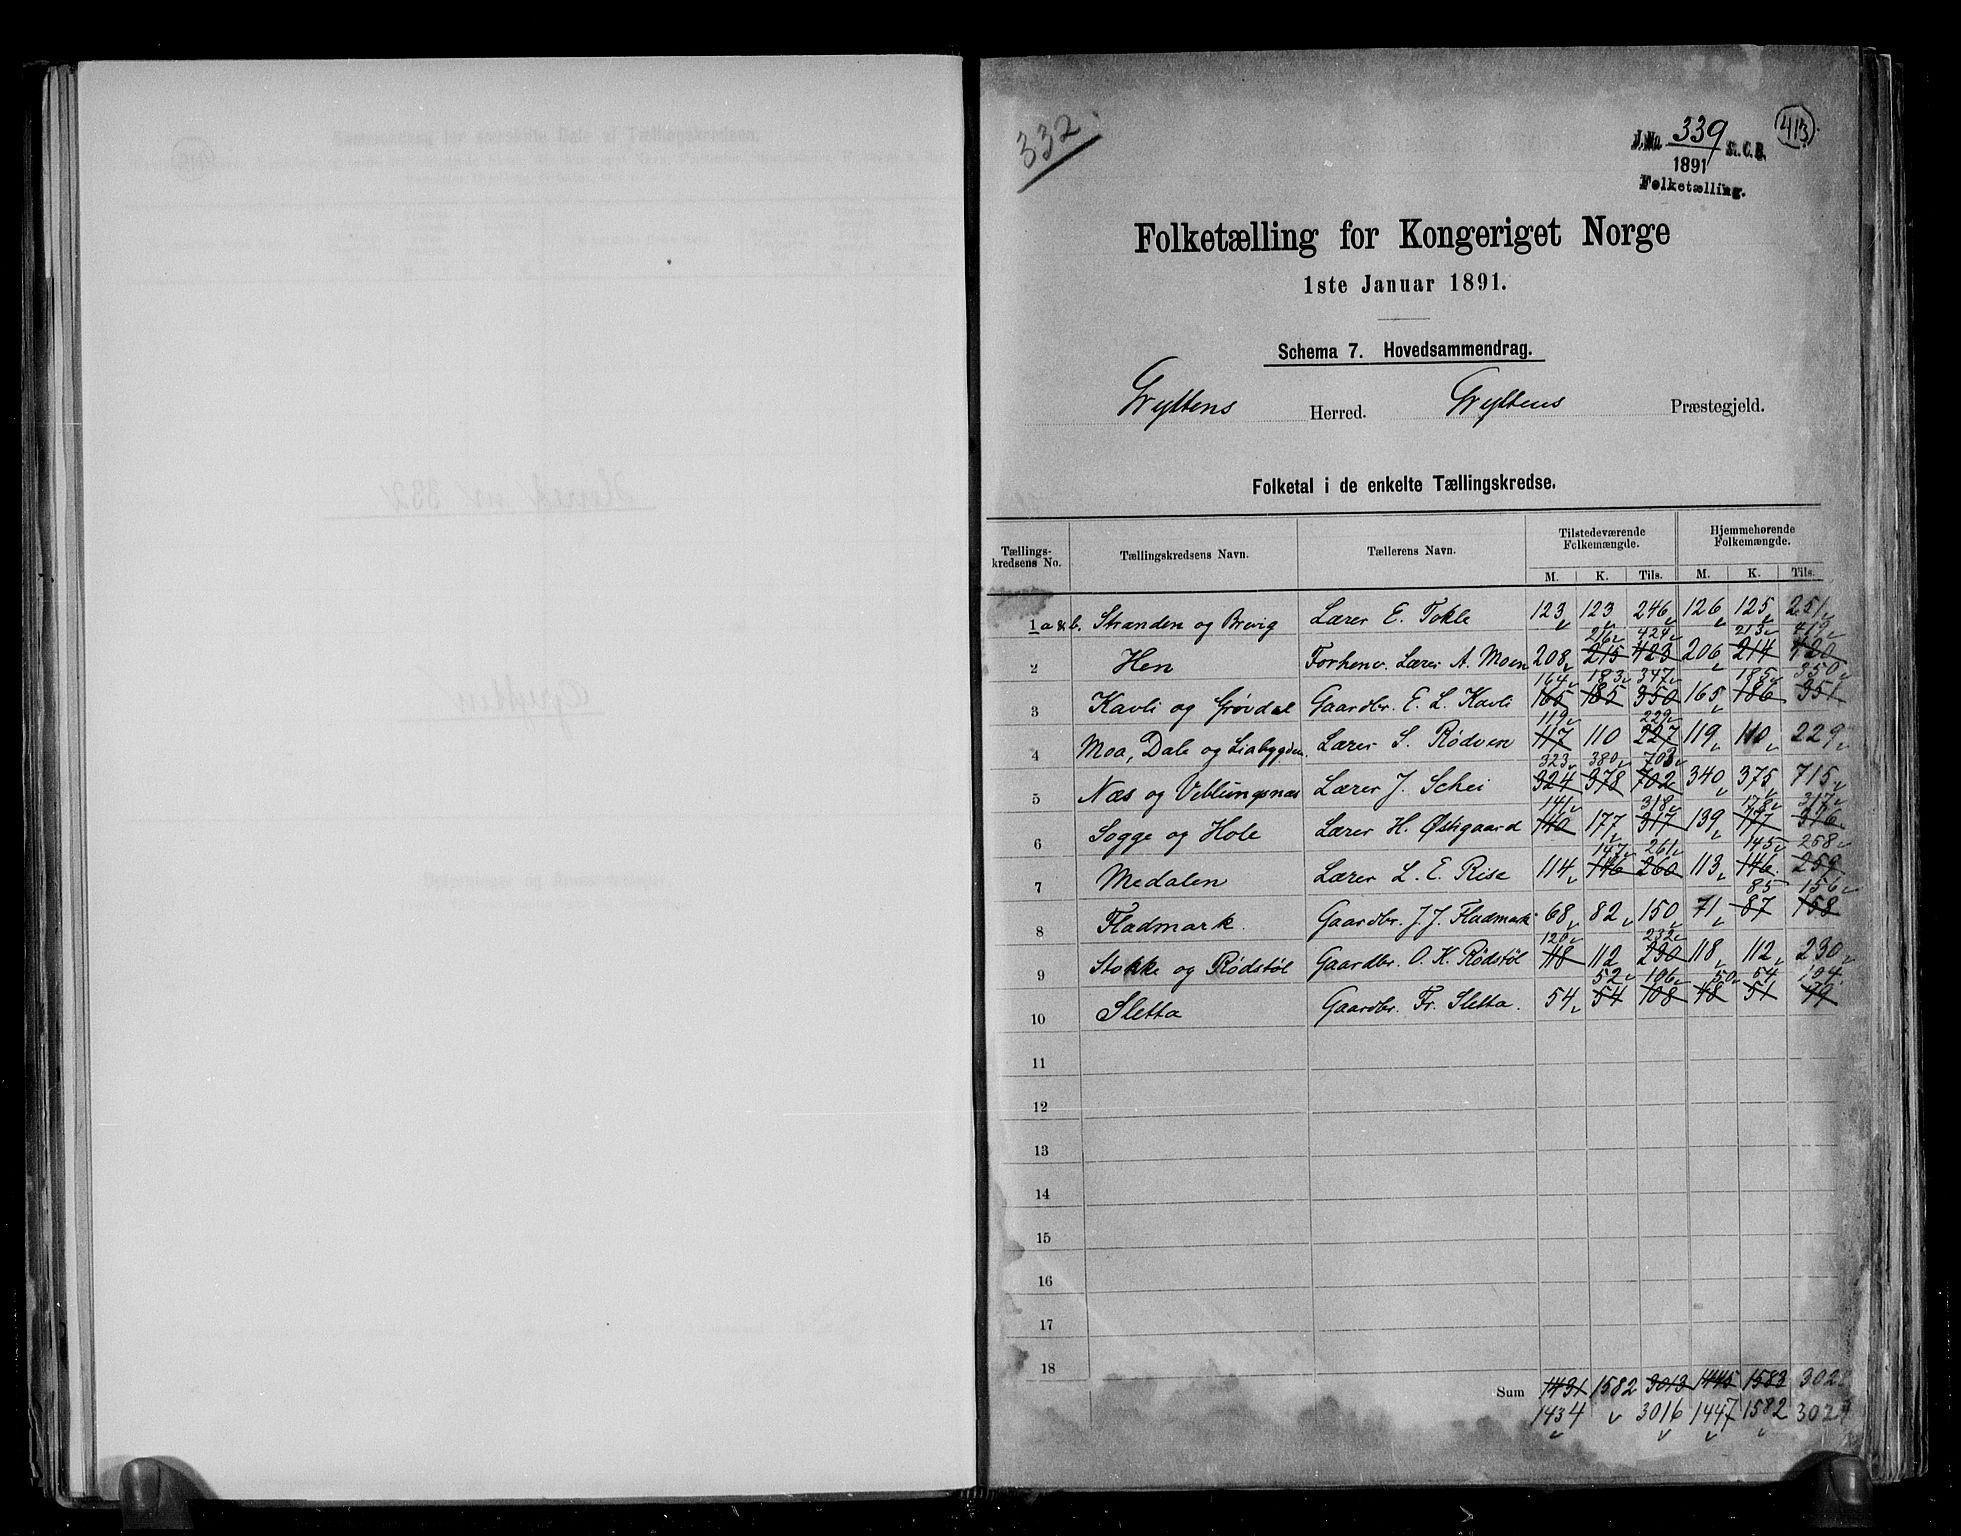 332.
J.No. 339 St. C. B.
1891
Folketælling.
413.
Folketælling for Kongeriget Norge
1ste Januar 1891.
Schema 7. Hovedsammendrag.
Gryttens Herred. Gryttens Præstegjeld.
Folketal i de enkelte Tællingskredse.
Tællings-kredsens No. Tællingskredsens Navn. Tællerens Navn. Tilstedeværende Folkemængde. Hjemmehørende Folkemængde.
M. K. Tils. M. K. Tils.
1 a & b. Stranden og Brevig Lærer E. Tokle 123 123 246 126 125 251
216 424 215
2 Hen Forhenv. Lærer A. Moen 208 215 423 206 214 420
164 183 347 185 350
3 Kavli og Grøvdal Gaardbr. E. L. Kavli 165 185 350 165 186 351
119 229
4 Moa, Dale og Liabygden. Lærer S. Rødven 117 110 227 119 110 229
323 380 703
5 Næs og Veblungsnæs Lærer J. Schei 324 378 702 340 375 715
141 318 178 317
6 Sogge og Hole Lærer H. Østigaard 140 177 317 139 177 316
147 261 145 258
7 Medalen Lærer L. E. Rise 114 146 260 113 146 259
85 156
8 Fladmark. Gaardbr. J. J. Fladmark 68 82 150 71 87 158
120 232
9 Stokke og Rødstøl Gaardbr. O. K. Rødstøl 118 112 230 118 112 230
52 106 50 54 104
10 Sletta Gaardbr. Fr. Sletta. 54 54 108 48 51
11
12
13
14
15
16
17
18
Sum 1431 1582 3013 1445 1583
1434 3016 1447 1582 3029